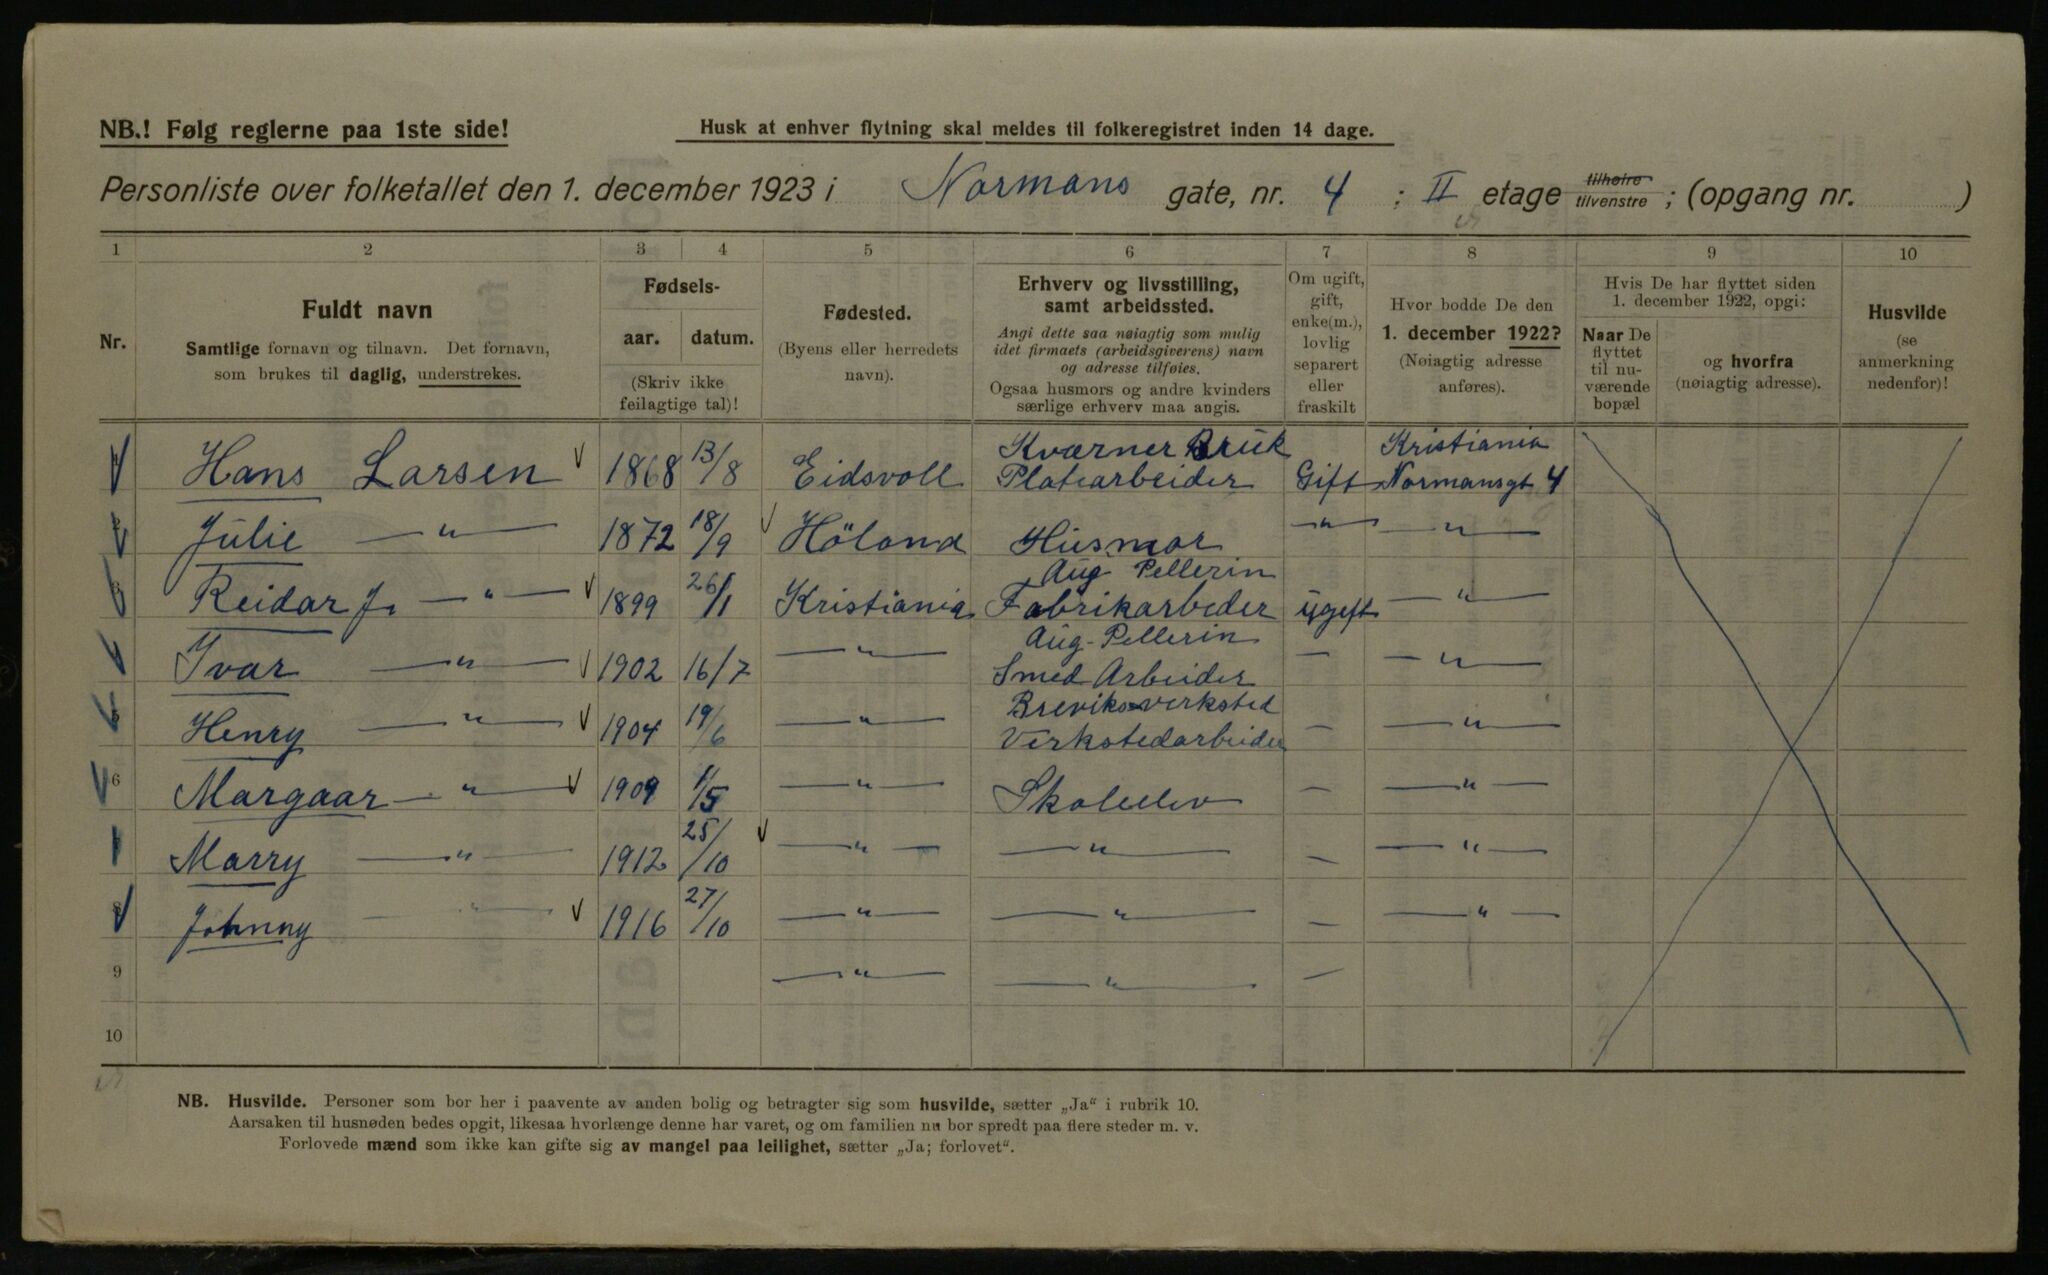 NB.! Følg reglerne paa 1ste side!
Husk at enhver flytning skal meldes til folkeregistret inden 14 dage.
Personliste over folketallet den 1. december 1923 i Normans gate, nr. 4 ; II etage tilhøire tilvenstre ; (opgang nr. )
1 2 3 4 5 6 7 8 9 10
Nr.
Fuldt navn
Samtlige fornavn og tilnavn. Det fornavn,
som brukes til daglig, understrekes.
Fødsels-
aar. datum.
(Skriv ikke
feilagtige tal)!
Fødested.
(Byens eller herredets
navn).
Erhverv og livsstilling,
samt arbeidssted.
Angi dette saa nøiagtig som mulig
idet firmaets (arbeidsgiverens) navn
og adresse tilføies.
Ogsaa husmors og andre kvinders
særlige erhverv maa angis.
Om ugift,
gift,
enke(m.),
lovlig
separert
eller
fraskilt
Hvor bodde De den
1. december 1922?
(Nøiagtig adresse
anføres).
Hvis De har flyttet siden
1. december 1922, opgi:
Naar De
flyttet
til nu-
værende
bopæl
og hvorfra
(nøiagtig adresse).
Husvilde
(se
anmerkning
nedenfor)!
Kværner Bruk Kristiania
Hans Larsen 1868 13/8 Eidsvoll Platearbeider Gift Normansgt 4
Julie — " — 1872 18/9 Höland Husmor — " — — " —
Aug Pellerin
Reidar J. — " — 1899 26/1 Kristiania Fabrikarbeder ugift — " —
Aug. Pellerin
Ivar — " — 1902 16/7 — " — Smed Arbeider — — " —
Breviks verksted
Henry — " — 1904 19/6 — " — Verkstedarbeider — — " —
6 Margaar — " — 1909 1/5 — " — Skoleelev — — " —
Marry — " — 1912 25/10 — " — — " — — — " —
8 Johnny — " — 1916 27/10 — " — — " — — — " —
9 — " — — " — —
10
NB. Husvilde. Personer som bor her i paavente av anden bolig og betragter sig som husvilde, sætter „Ja“ i rubrik 10.
Aarsaken til husnøden bedes opgit, likesaa hvorlænge denne har varet, og om familien nu bor spredt paa flere steder m. v.
Forlovede mænd som ikke kan gifte sig av mangel paa leilighet, sætter „Ja; forlovet“.